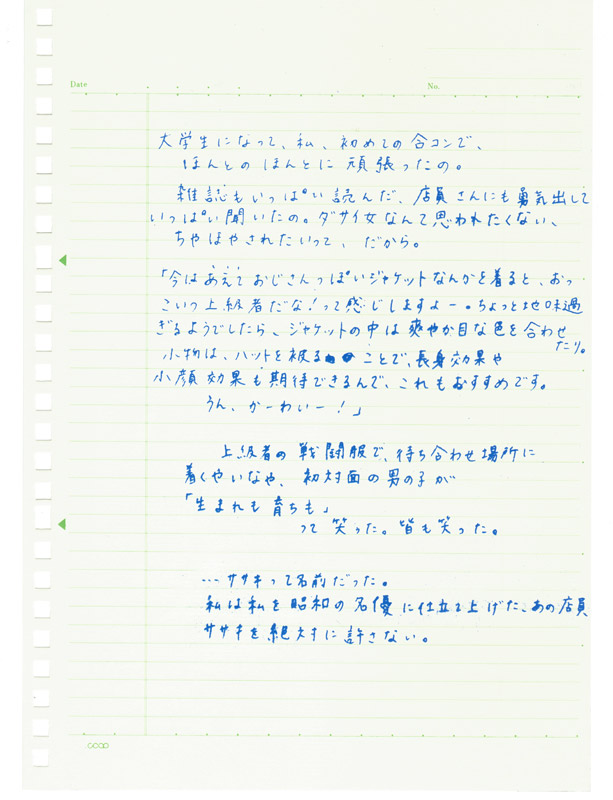 Date
No.
大学生になって、私、初めての合コンで、
ほんとのほんとに頑張ったの。
雑誌もいっぱい読んだ、店員さんにも勇気出して
いっぱい聞いたの。ダサイ女なんて思われたくない、
ちやほやされたいって、だから。
「今はあえておじさんっぽいジャケットなんかを着ると、おっ
こいつ上級者だな!って感じしますよー。ちょっと地味過
ぎるようでしたら、ジャケットの中は爽やか目な色を合わせ
たり。
小物は、ハットを被ることで、長身効果や
小顔効果も期待できるんで、これもおすすめです。
うん、かーわいー!」
上級者の戦闘服で、待ち合わせ場所に
着くやいなや、初対面の男の子が
「生まれも育ちも」
って笑った。皆も笑った。
…ササキって名前だった。
私は私を昭和の名優に仕立て上げた、あの店員
ササキを絶対に許さない。